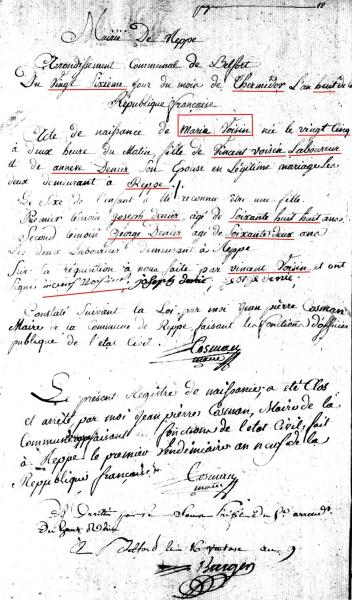 12
Mairie De Reppe
Arrondissement Communal de Belfort
Du vingt Sixieme jour du mois de Thermidor L'an huit de la
République française
Acte de naissance de Maria Voisin née le vingt cinq
à deux heure du Matin fille de Vincent voisin Laboureur
et de annère Denier Son Epouse en Légitime mariage les
deux demeurant à Reppe
Le Sexe de l'enfant a été reconnu une fille.
Premier témoin joseph Denier âgé de Soixante huit ans
Second témoin George Denier âgé de Soixante deux ans
Les deux Laboureur demeurant à Reppe
Sur la requition à nous faite par vincent Voisin et ont
signés
Constaté Suivant la Loi par moi jean pierre Cosman
Maire de la Commune de Reppe faisant les fonction d'officier
publique de l'état Civil.
Cosman
maire
Le présent Registre de naissance, a été Clos
et arrêté par moi jean pierre Cosman, Maire de la
Commune faisant les fonctions de l'etat Civil, fait
à Reppe le premier vendémiaire an neuf de la
République française
Cosman
maire
Du haut Rhin
Belfort le 16 an 9